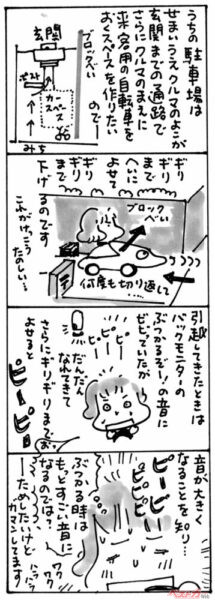 うちの駐車場は
せまいうえクルマのよこが
玄関までの通路で
さらにクルマのまえに
来客用の自転車を
おくスペースを作りたい
ので—
玄関
ブロックべい
ポスト
カースペース
みち
ギリ
ギリ
まで
ギリ
ギリ
まで
へいに
よせて
ブロック
べい
下げ
るのです
何度も切り返して
これがけっこう
たのしい…
引越してきたときは
バックモニターの
ぶつかるぞ!の音に
ビビっていたが
ピピピ
だんだん
なれてきて
さらにギリギリまで
よせると
ピーピー
音が大きく
なることを知り…
ピーピー
ぶつかる時は
もっとすごい音に
なるのでは?
ためしたいけど
ガマンしてます
ワクワク